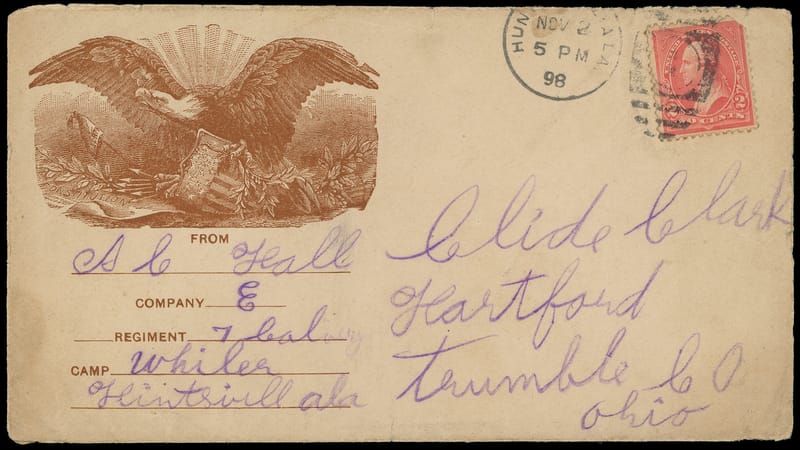 NOV 2
5 PM
98
2 CENTS
FROM
A C Hall
COMPANY E
REGIMENT 7 Cal
CAMP Whiler
Huntsvill ala
Clide Clark
Hartford
Trumble CO
Ohio